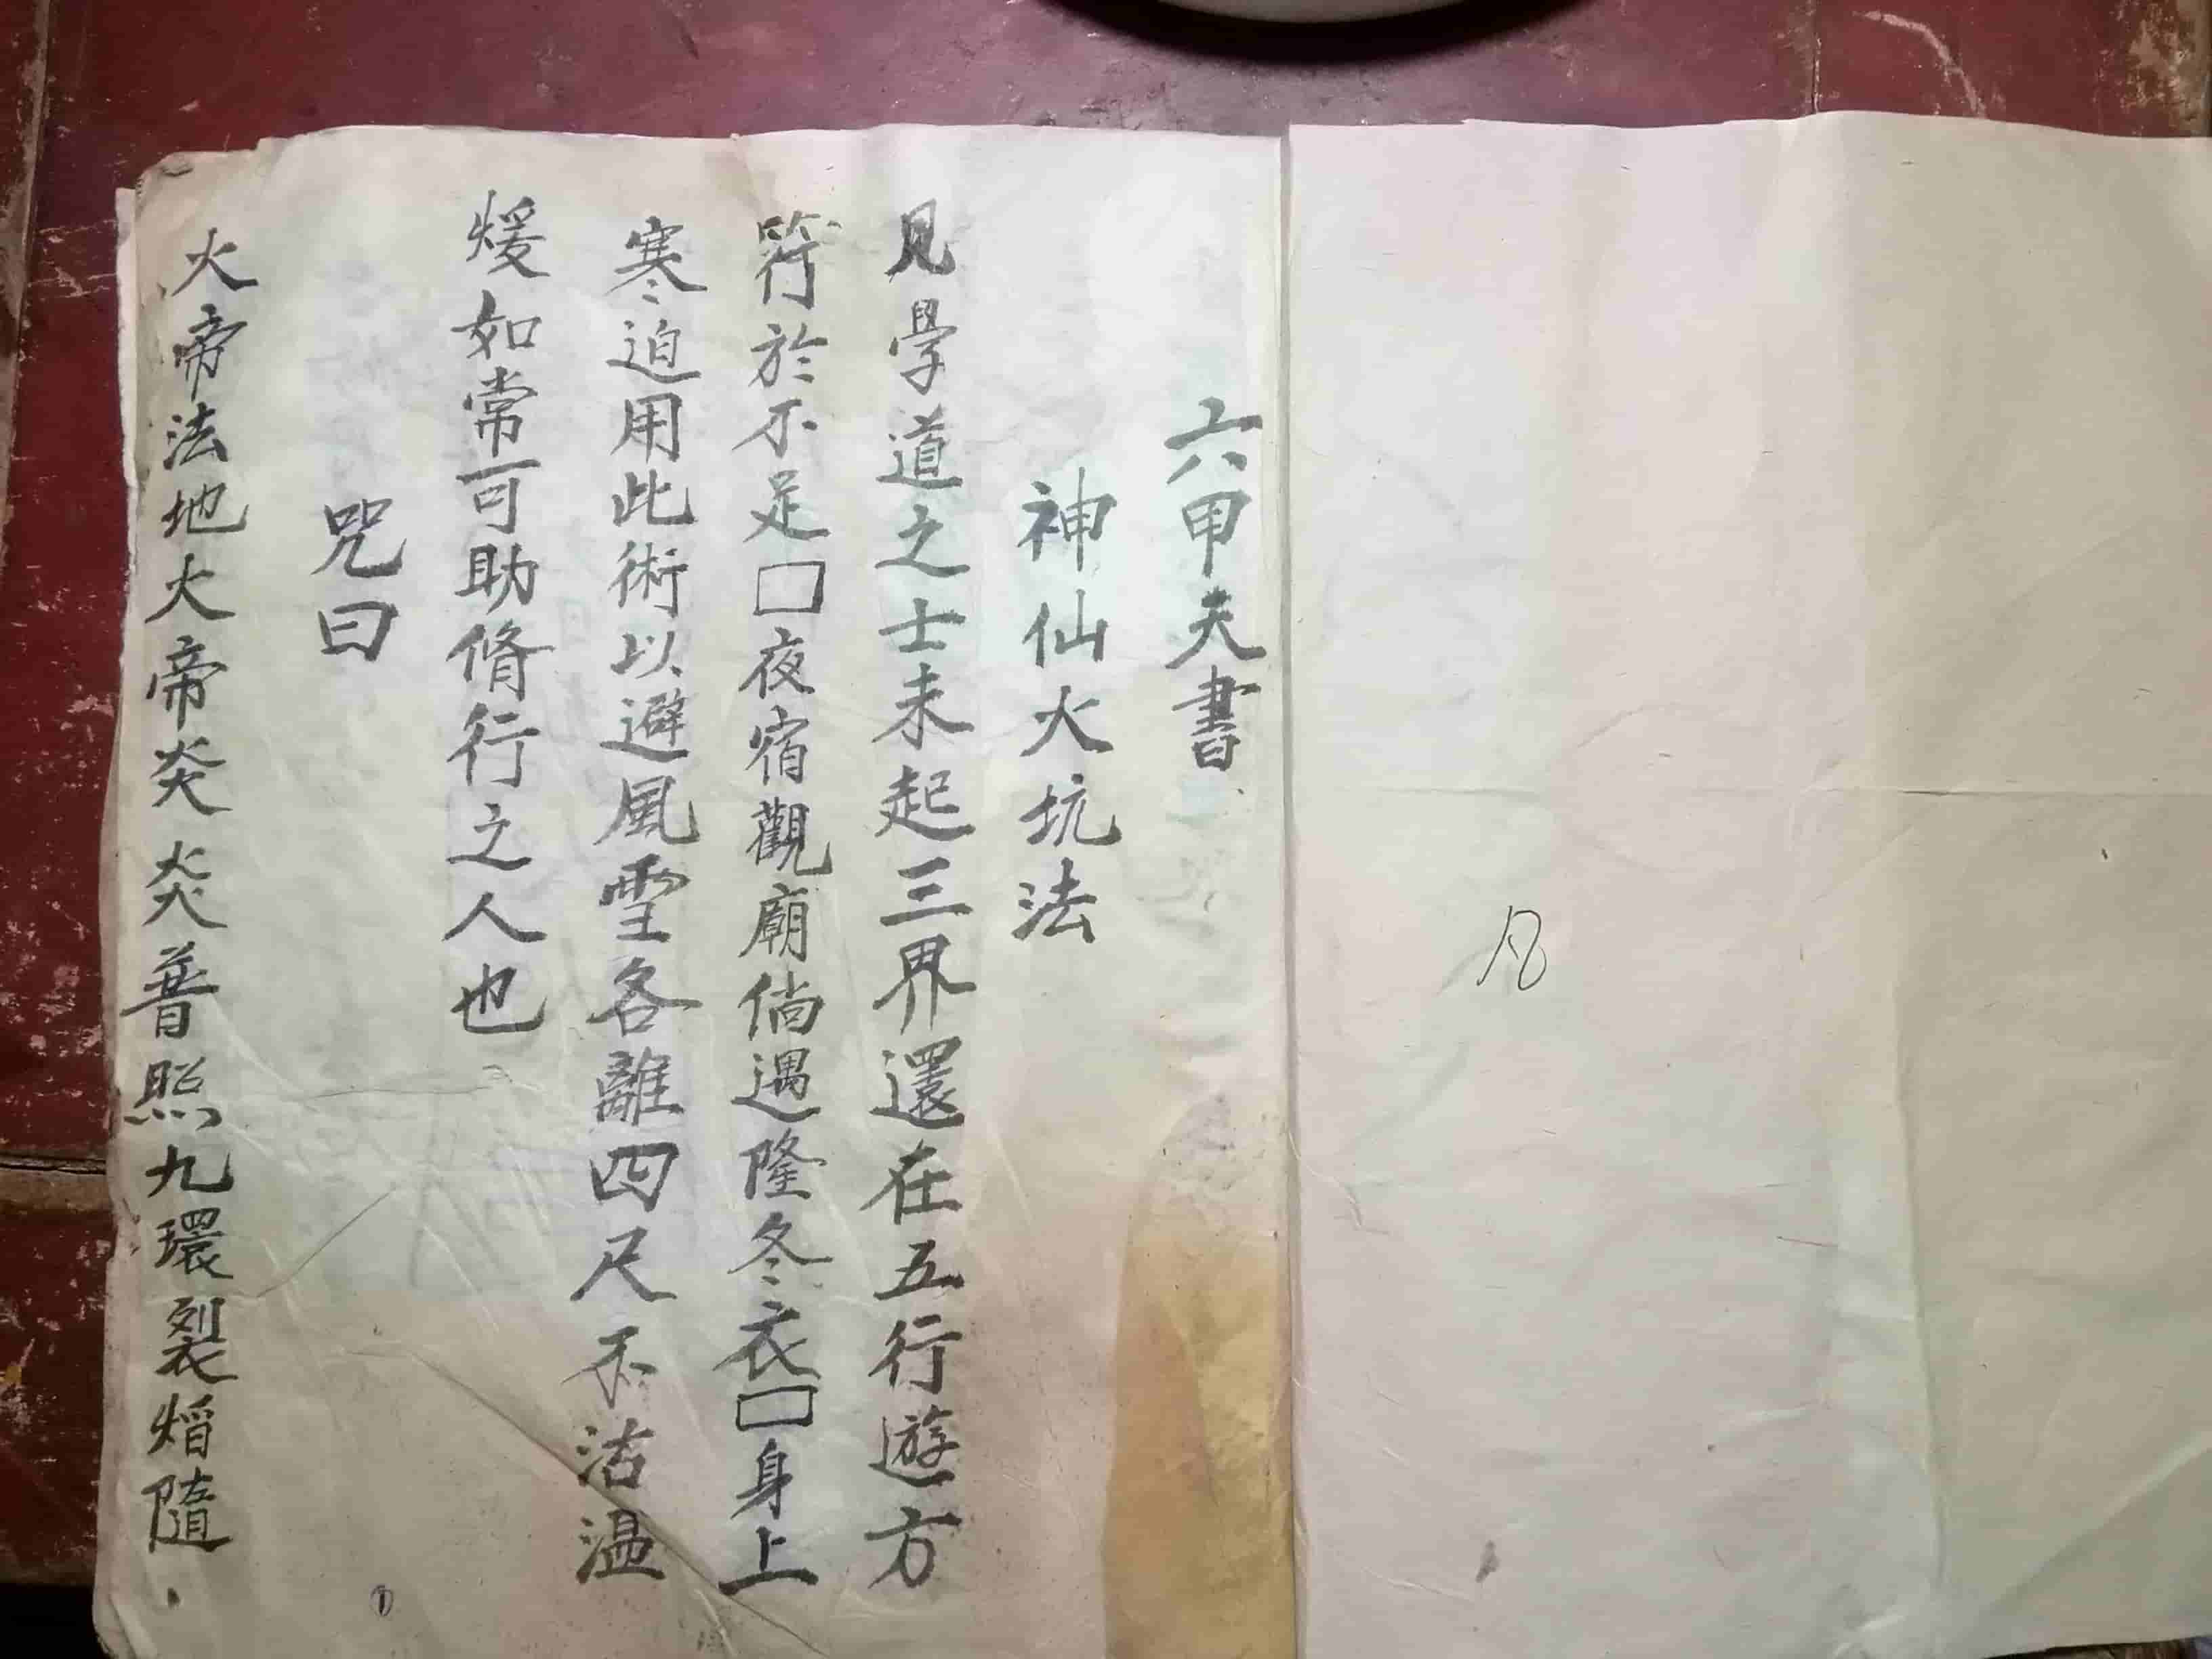 凡
六甲天書
神仙火坑法
見學道之士未起三界還在五行遊方
符於不足□夜宿觀廟倘遇隆冬衣□身上
寒迫用此術以避風雪各離四尺不沾溫
煖如常可助脩行之人也
咒曰
火帝法地火帝炎炎普照九環裂焰隨
①